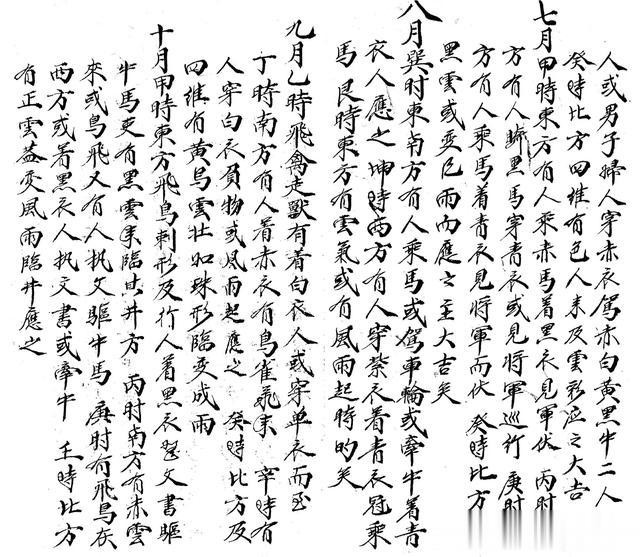 人或男子婦人穿赤衣駕赤白黃黑牛二人
癸時比方四維有色人来及雲彩應之大吉
七月甲時東方有人乘赤馬着黑衣見軍伏 丙时
方有人騎黑馬穿青衣或見將軍巡行 庚时
方有人乘馬着青衣見將軍而伏 癸時比方
黑雲或变色雨而應之主大吉矣
八月巽时東南方有人乘馬或駕車輪或牽牛着青
衣人應之 坤時西方有人穿紫衣着青衣冠乘
馬 艮時東方有雲氣或有風雨起時的矣
九月乙時飛禽走獸有着白衣人或穿单衣而至
丁時南方有人着赤衣有鳥雀飛来 辛時有
人穿白衣負物或风雨起應之 癸時比方及
四維有黃烏雲壮如珠形臨变成雨
十月甲時東方飛鳥刺形及行人着黑衣 文書驅
牛馬更有黑雲来臨其井方 丙时南方有赤雲
來或鳥飛又有人执文驅牛馬 庚时有飛鳥在
西方或着黑衣人执文書或牽牛 壬時比方
有正雲蓋变風雨臨井應之